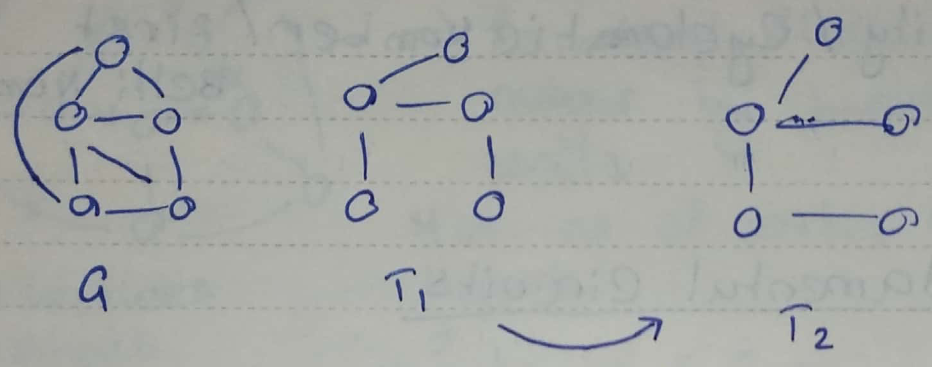 G T1 T2